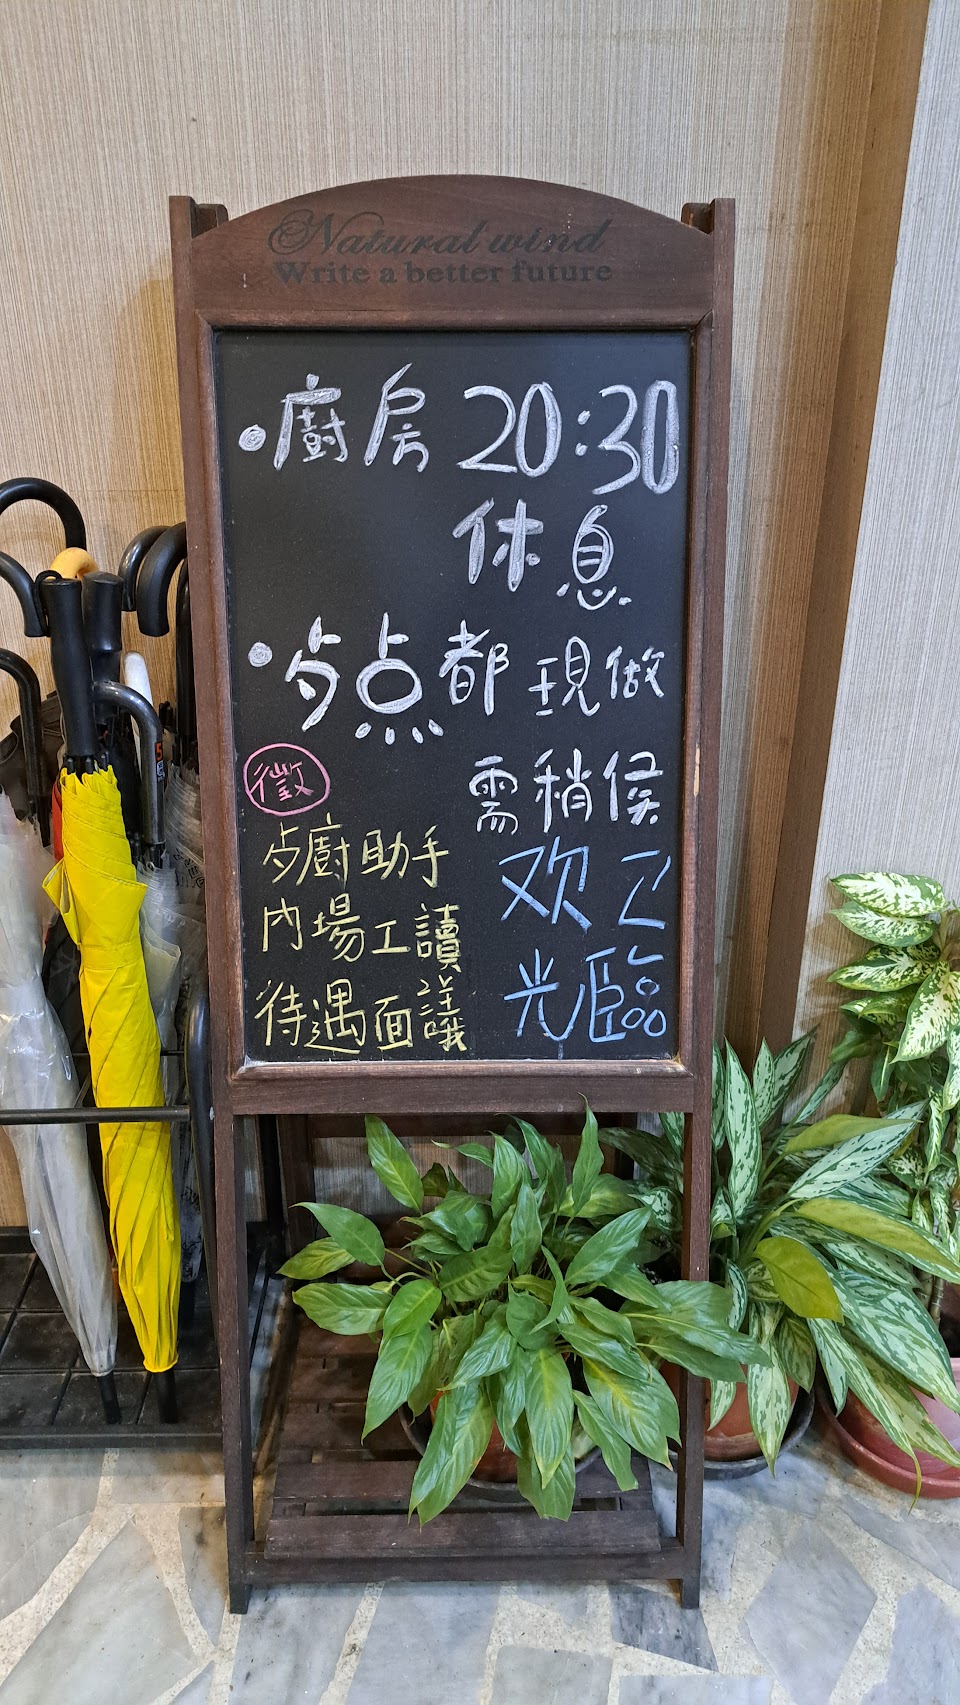 Natural wind
Write a better future
•廚房 20:30
休息
•歺点都現做
需稍侯
徵
歺廚助手
內場工讀
待遇面議
欢迎
光臨